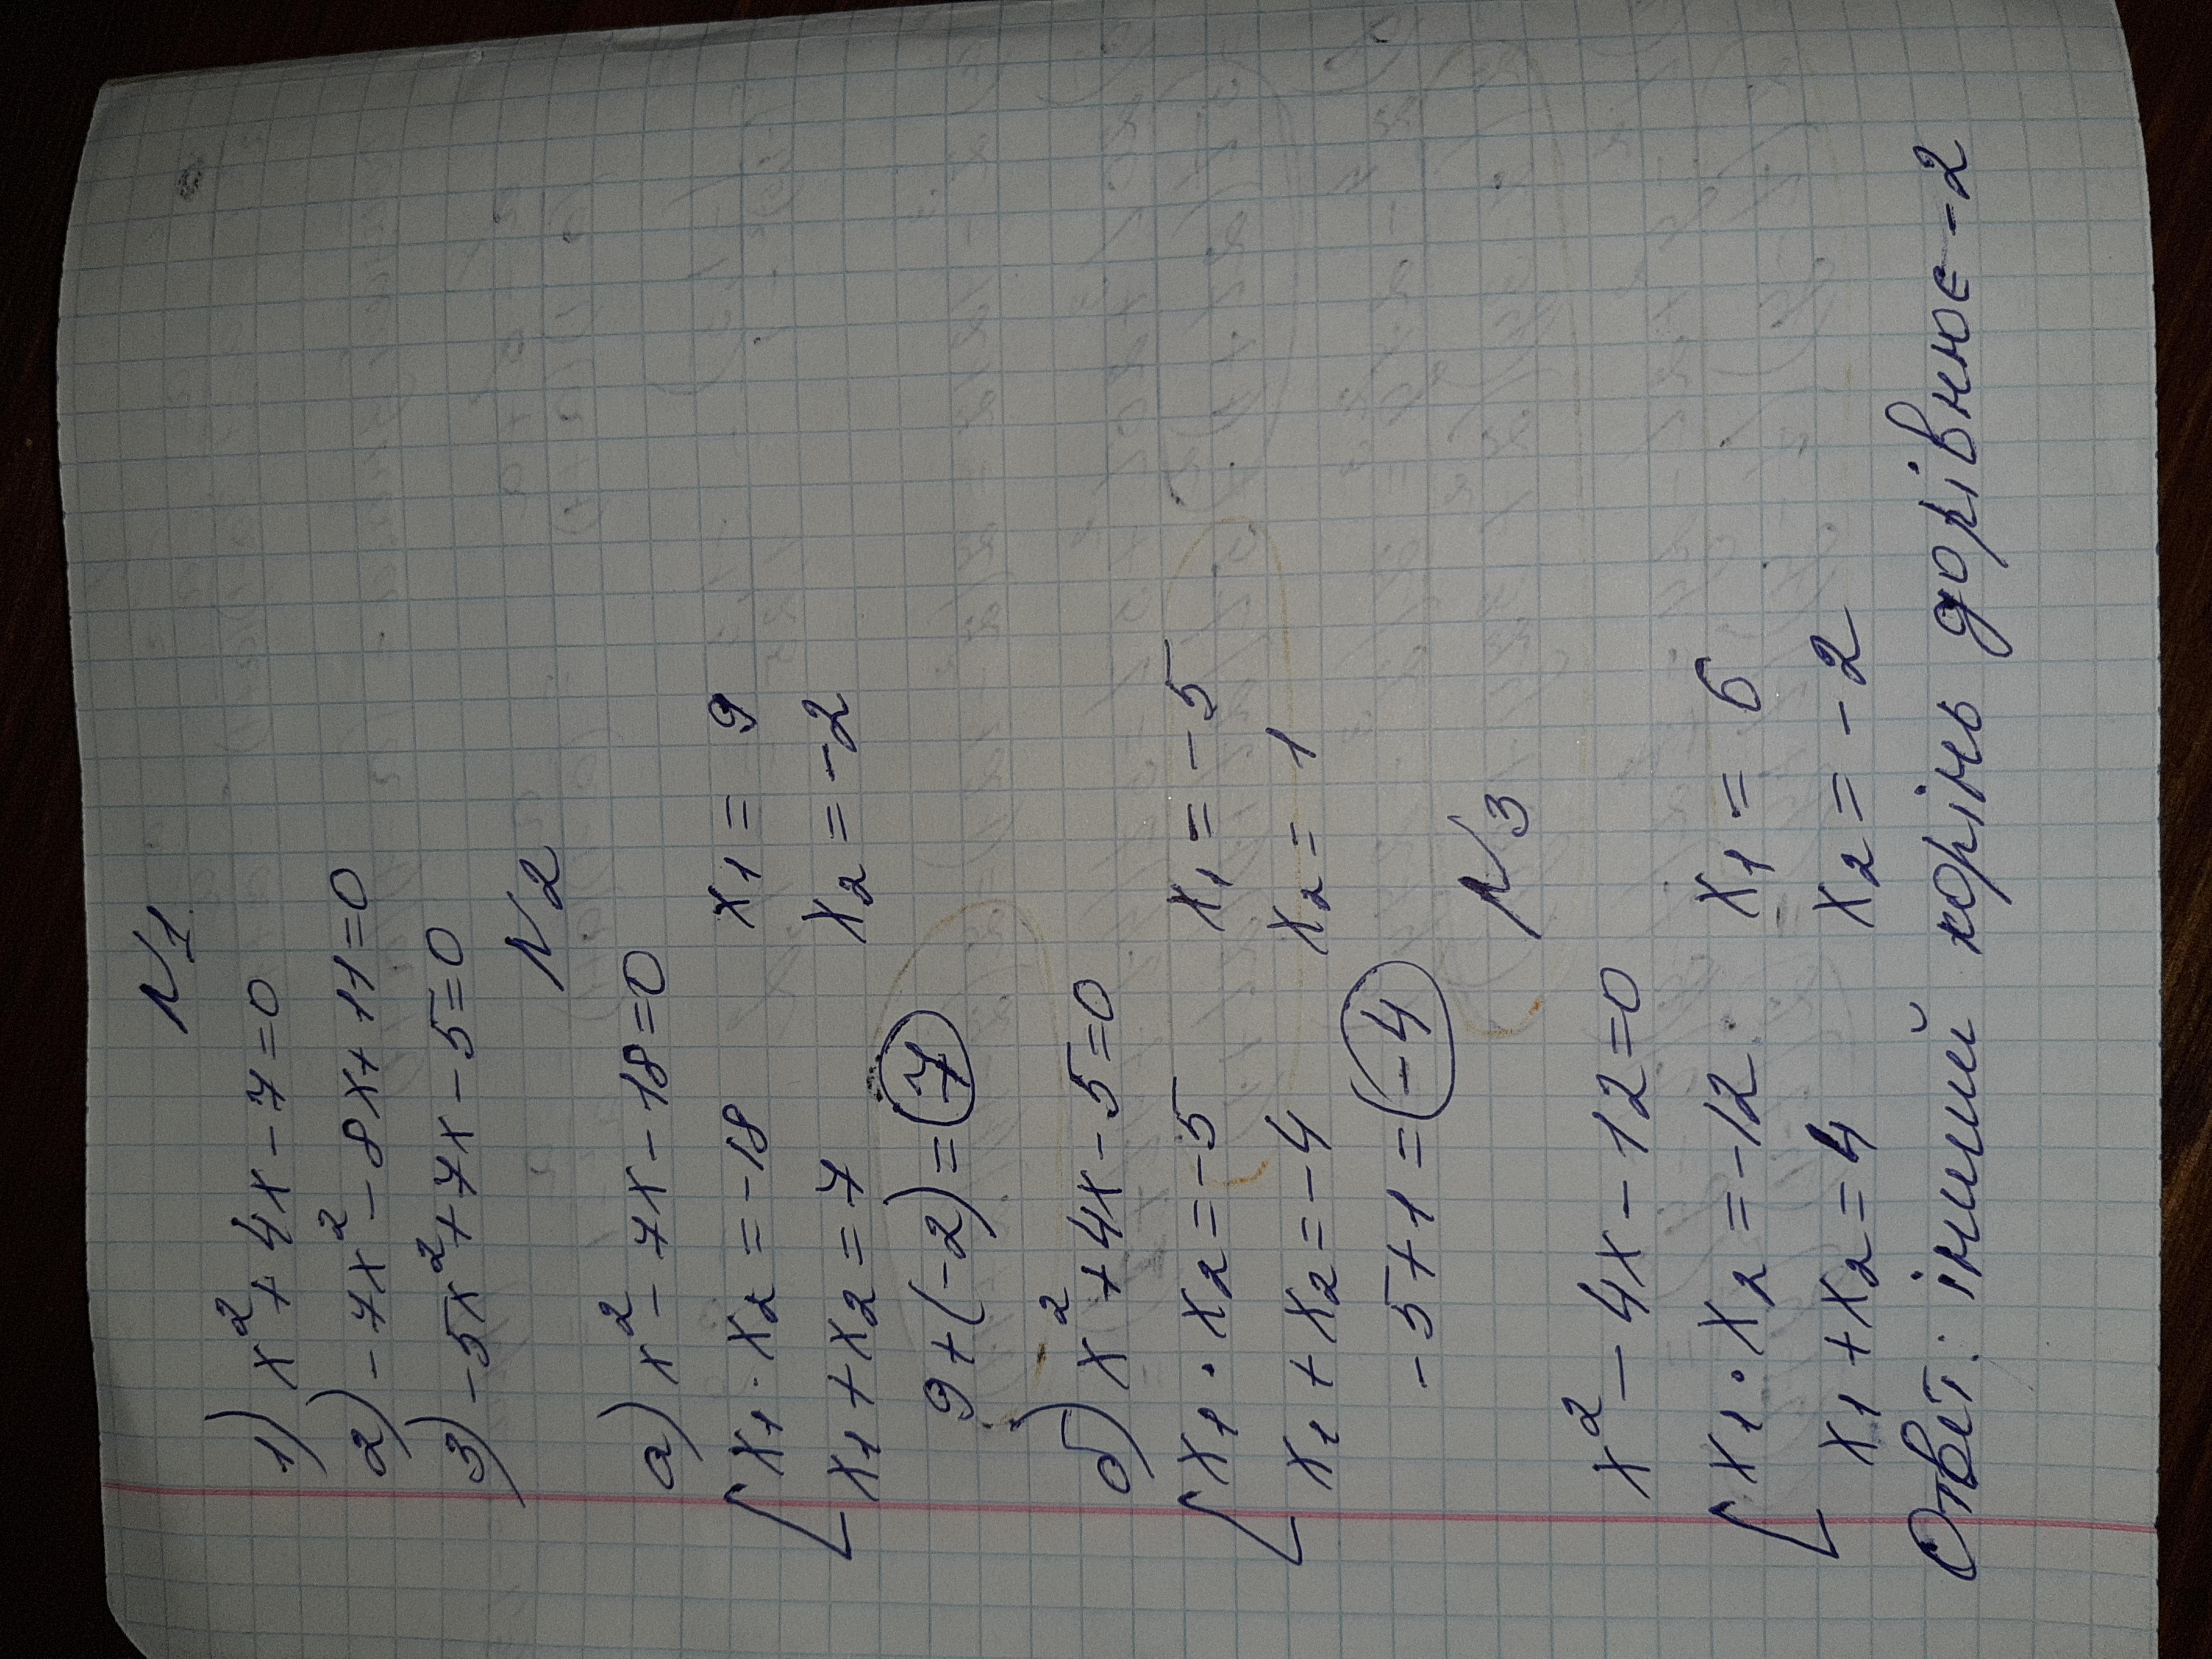 N1
1) x² + 4x - 7 = 0
2) -7x² - 8x + 11 = 0
3) -5x² + 7x - 5 = 0
N2
а) x² - 7x - 18 = 0
[x1 · x2 = -18 x1 = 9
x1 + x2 = 7 x2 = -2
9 + (-2) = 7
б) x² + 4x - 5 = 0
[x1 · x2 = -5 x1 = -5
x1 + x2 = -4 x2 = 1
-5 + 1 = -4
N3
x² - 4x - 12 = 0
[x1 · x2 = -12 x1 = 6
x1 + x2 = 4 x2 = -2
Ответ: інший корінь дорівнює -2